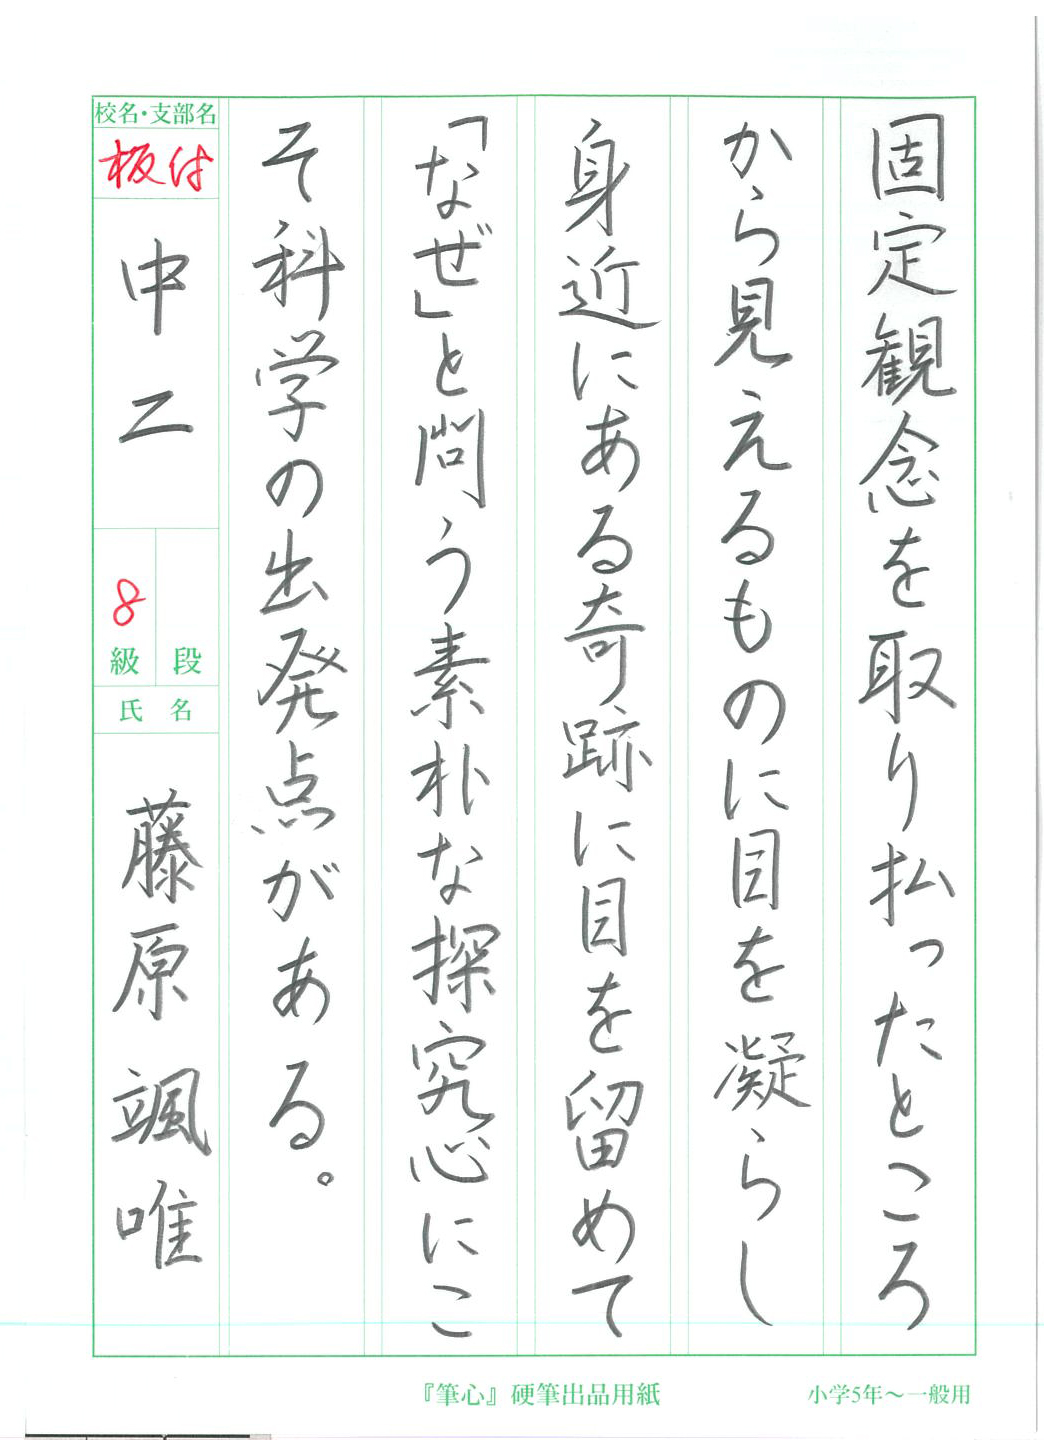 固定観念を取り払ったところ
から見えるものに目を凝らし
身近にある奇跡に目を留めて
「なぜ」と問う素朴な探究心にこ
そ科学の出発点がある。
校名・支部名
板付
中二
8
級 段
氏名
藤原颯唯
『筆心』硬筆出品用紙
小学5年～一般用